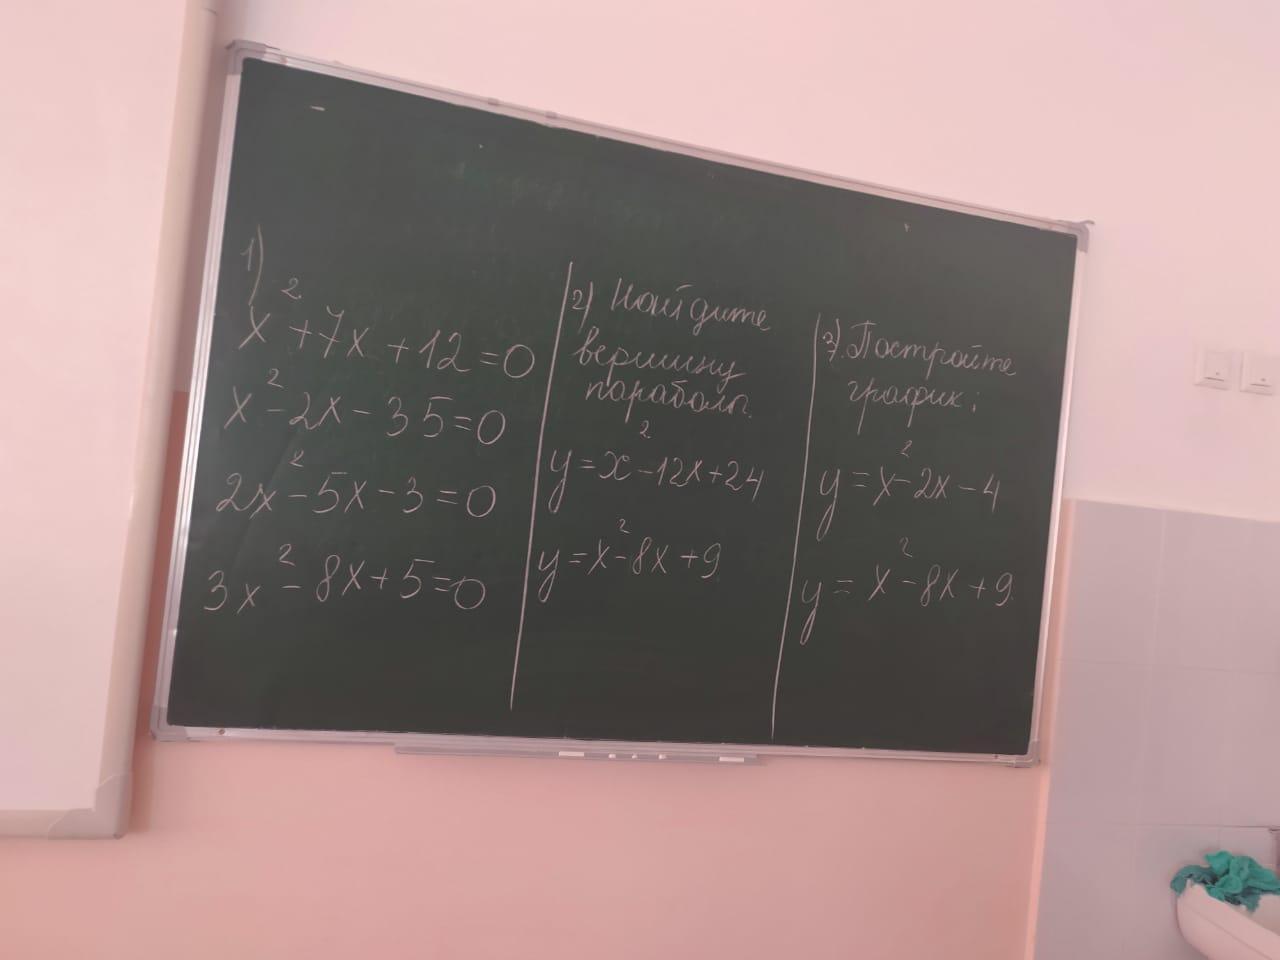 1)
x²+7x+12=0
x²-2x-35=0
2x²-5x-3=0
3x²-8x+5=0
2) Найдите
вершину
параболы.
y=x²-12x+24
y=x²-8x+9
3) Постройте
график:
y=x²-2x-4
y=x²-8x+9.